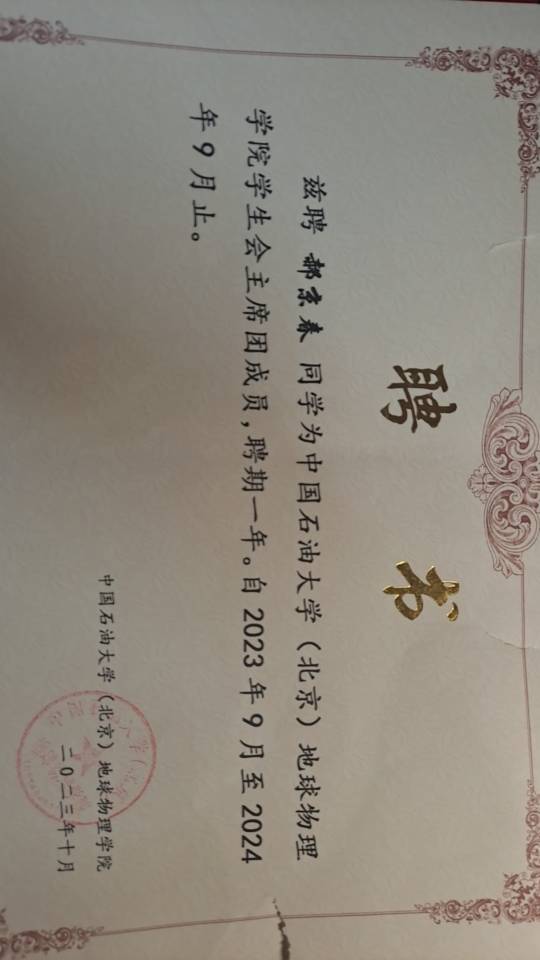 聘书
兹聘 郝京春 同学为中国石油大学（北京）地球物理
学院学生会主席团成员，聘期一年。自2023年9月至2024
年9月止。
中国石油大学（北京）地球物理学院
二〇二三年十月